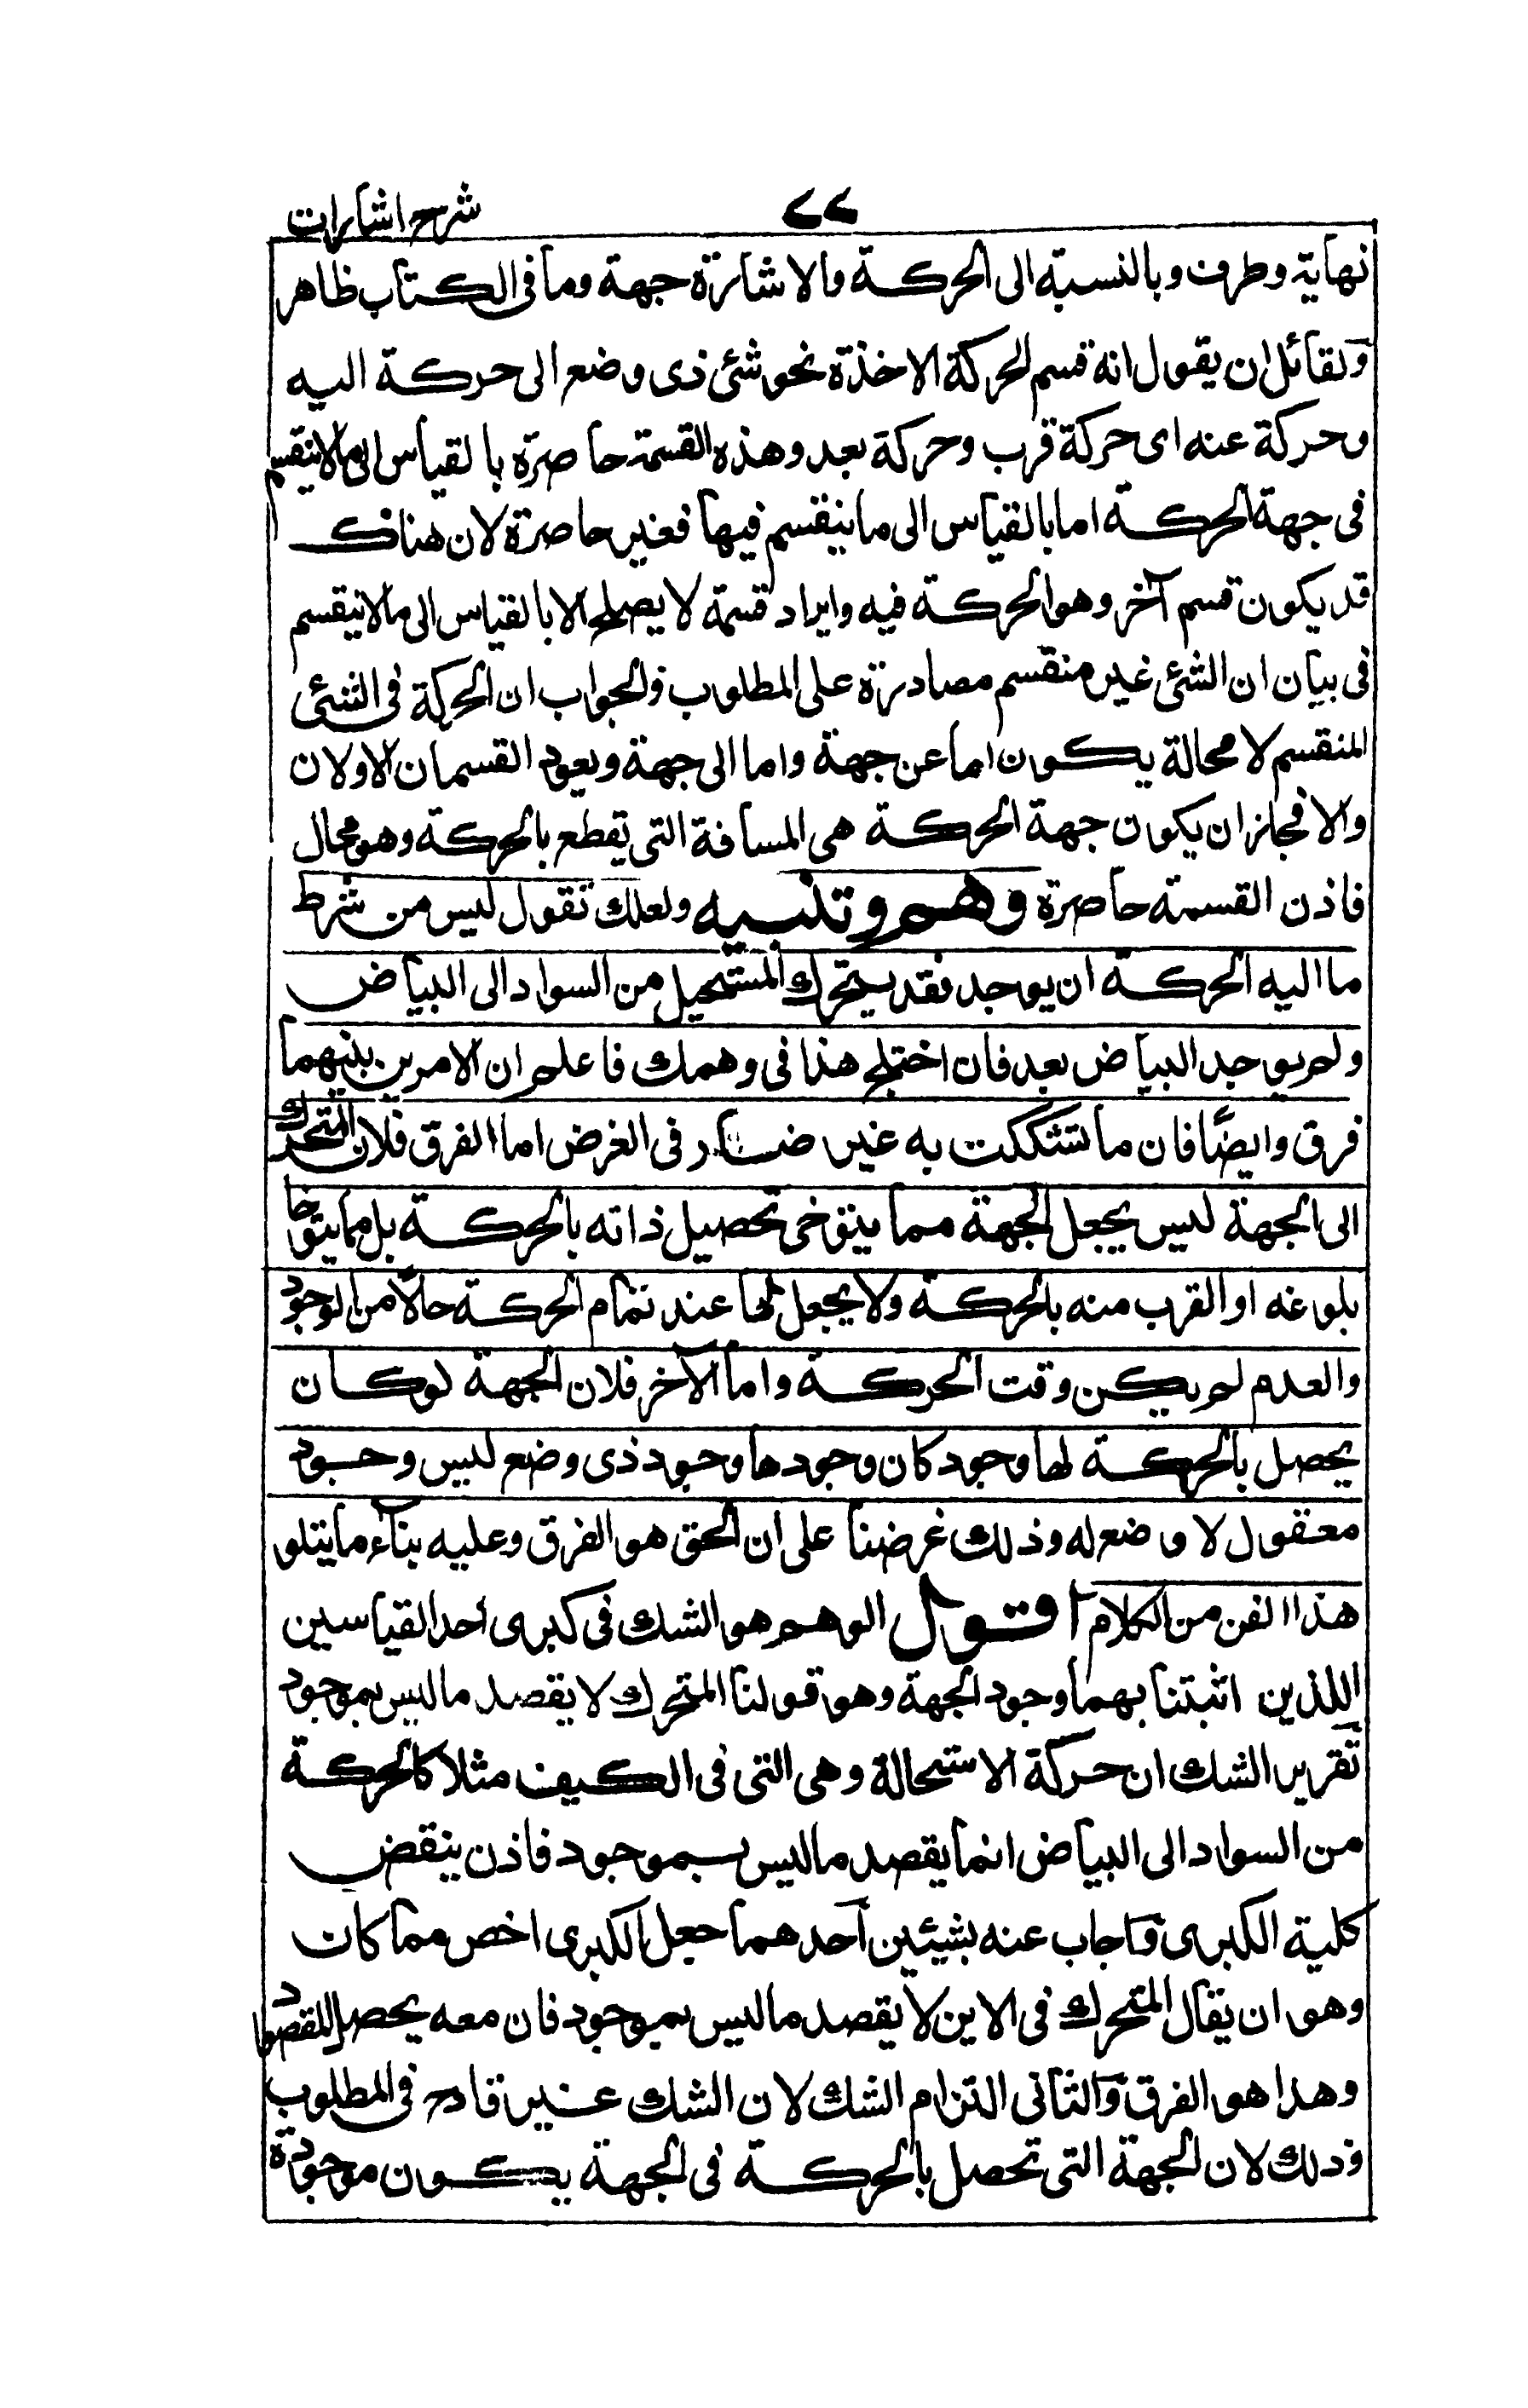 شرح اشارات
٧٧
نهاية وطرف وبالنسبة الى الحركة والاشارة جهة وما فى الكتاب ظاهر
ولقائل ان يقول انه قسم الحركة الاخذة نحو شئ ذى وضع الى حركة اليه
وحركة عنه اى حركة قرب وحركة بعد وهذه القسمة حاصرة بالقياس الى ما لا ينقسم
فى جهة الحركة اما بالقياس الى ما ينقسم فيها فغير حاصرة لان هناك
قد يكون قسم آخر وهو الحركة فيه وايراد قسمة لا يصلح الا بالقياس الى ما لا ينقسم
فى بيان ان الشئ غير منقسم مصادرة على المطلوب والجواب ان الحركة فى الشئ
المنقسم لا محالة يكون اما عن جهة واما الى جهة ويعود القسمان الاولان
والا فجاز ان يكون جهة الحركة هى المسافة التى تقطع بالحركة وهو محال
فاذن القسمة حاصرة وهم وتنبيه ولعلك تقول ليس من شرط
ما اليه الحركة ان يوجد فقد يتحرك المستحيل من السواد الى البياض
ولم يوجد البياض بعد فان اختلج هذا فى وهمك فاعلم ان الامرين بينهما
فرق وايضًا فان ما تشككت به غير ضار فى الغرض اما الفرق فلان المتحرك
الى الجهة ليس يجعل الجهة مما يتوخى تحصيل ذاته بالحركة بل مما يتوخا
بلوغه او القرب منه بالحركة ولا يجعل لها عند تمام الحركة حالًا من الوجود
والعدم لم يكن وقت الحركة واما الآخر فلان الجهة لو كان
يحصل بالحركة لها وجود كان وجودها وجود ذى وضع ليس وجود
معقول لا وضع له وذلك غرضنا على ان الحق هو الفرق وعليه بناء ما يتلو
هذا الفن من الكلام اقول الوهم هو الشك فى كبرى احد القياسين
اللذين اثبتنا بهما وجود الجهة وهو قولنا المتحرك لا يقصد ما ليس بموجود
تقرير الشك ان حركة الاستحالة وهى التى فى الكيف مثلا كالحركة
من السواد الى البياض انما يقصد ما ليس بموجود فاذن ينقض
كلية الكبرى واجاب عنه بشيئين احدهما جعل الكبرى اخص مما كان
وهو ان يقال المتحرك فى الاين لا يقصد ما ليس بموجود فان معه يحصل المقصود
وهذا هو الفرق والثانى التزام الشك لان الشك غير قادح فى المطلوب
وذلك لان الجهة التى تحصل بالحركة فى الجهة يكون موجودة